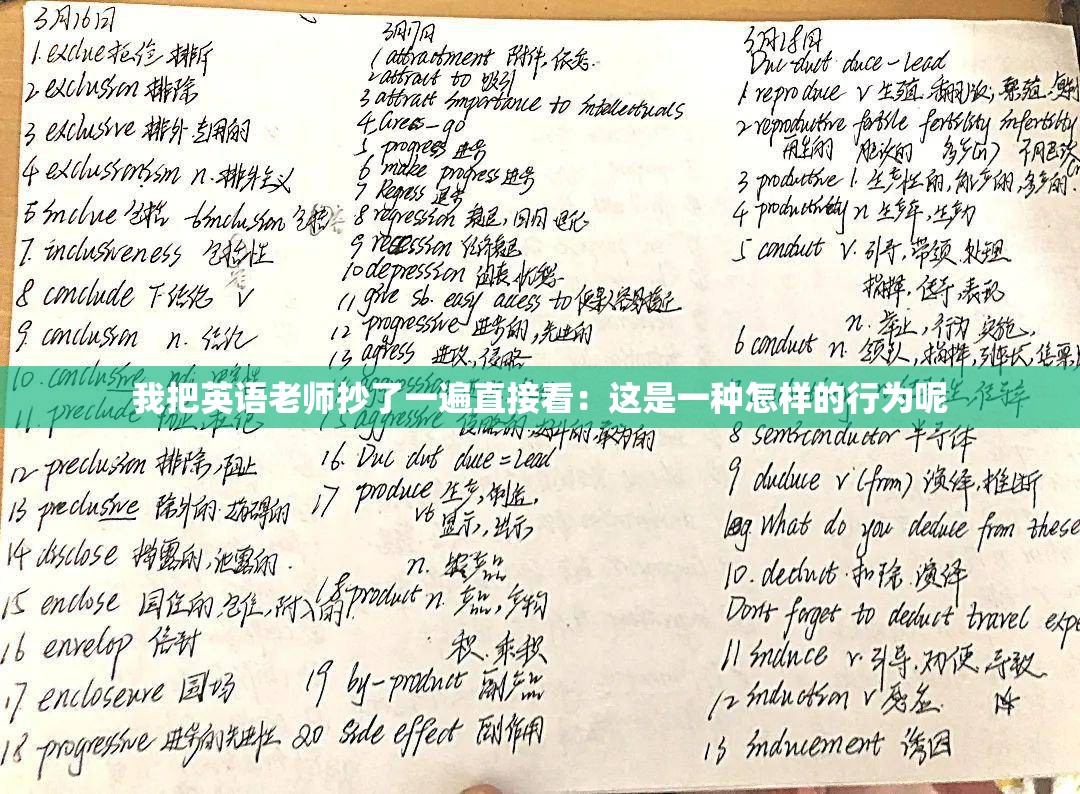 3月16日
1. exclue 排斥
2 exclusion 排除
3 exclusive 排外 专用的
4 exclusionism n. 排外主义
5 inclue 包括 6 inclusion 包括
7. inclusiveness 包括性
8 conclude 下结论 v
9. conclusion n. 结论
10. conclusive
11. preclude
12 preclusion 排除,阻止
13 preclusive 除外的 妨碍的
14 disclose 揭露的,泄露的.
15 enclose 围住的,包住,附入的
16 envelop 信封
17 encloseure 围场
18 progressive 进步的先进性
3月17日
1 attractment 附件,依恋.
2 attract to 吸引
3 attract importance to intellectuals
4 Gress-go
5 progress 进步
6 make progress 进步
7 Regress 退步
8 regression 衰退,回归 退化
9 recession 经济衰退
10 depression 沮丧,忧愁.
11 give sb. easy access to 使某人容易接近
12 progressive 进步的,先进的
13 agress 进攻,侵略
15 aggressive 侵略的,好斗的,敢为的
16. Duc dut duce = Lead
17 produce 生产,制造,
vb 显示,出示
n. 农产品
18 product n. 产品,产物
积.乘积
19 by-product 副产品
20 side effect 副作用
3月18日
Duc-duct duce-Lead
1 reproduce v 生殖 翻版; 繁殖.复制
2 reproductive fertile fertility infertility
再生的 肥沃的
3 productive 1. 生产性的,能产的,多产的.
4 productivity n 生产率,生产力
5 conduct v. 引导,带领,处理
指挥,传导,表现
n. 举止,行为 实施
6 conduct n. 领队,指挥,列车长,售票
我把英语老师抄了一遍直接看：这是一种怎样的行为呢
8 semiconductor 半导体
9 duduce v (from) 演绎,推断
eg. What do you deduce from these
10. deduct 扣除.演绎
Dont forget to deduct travel expe
11 induce v. 引导,劝使,导致
12 induction v 感应.
13 inducement 诱因